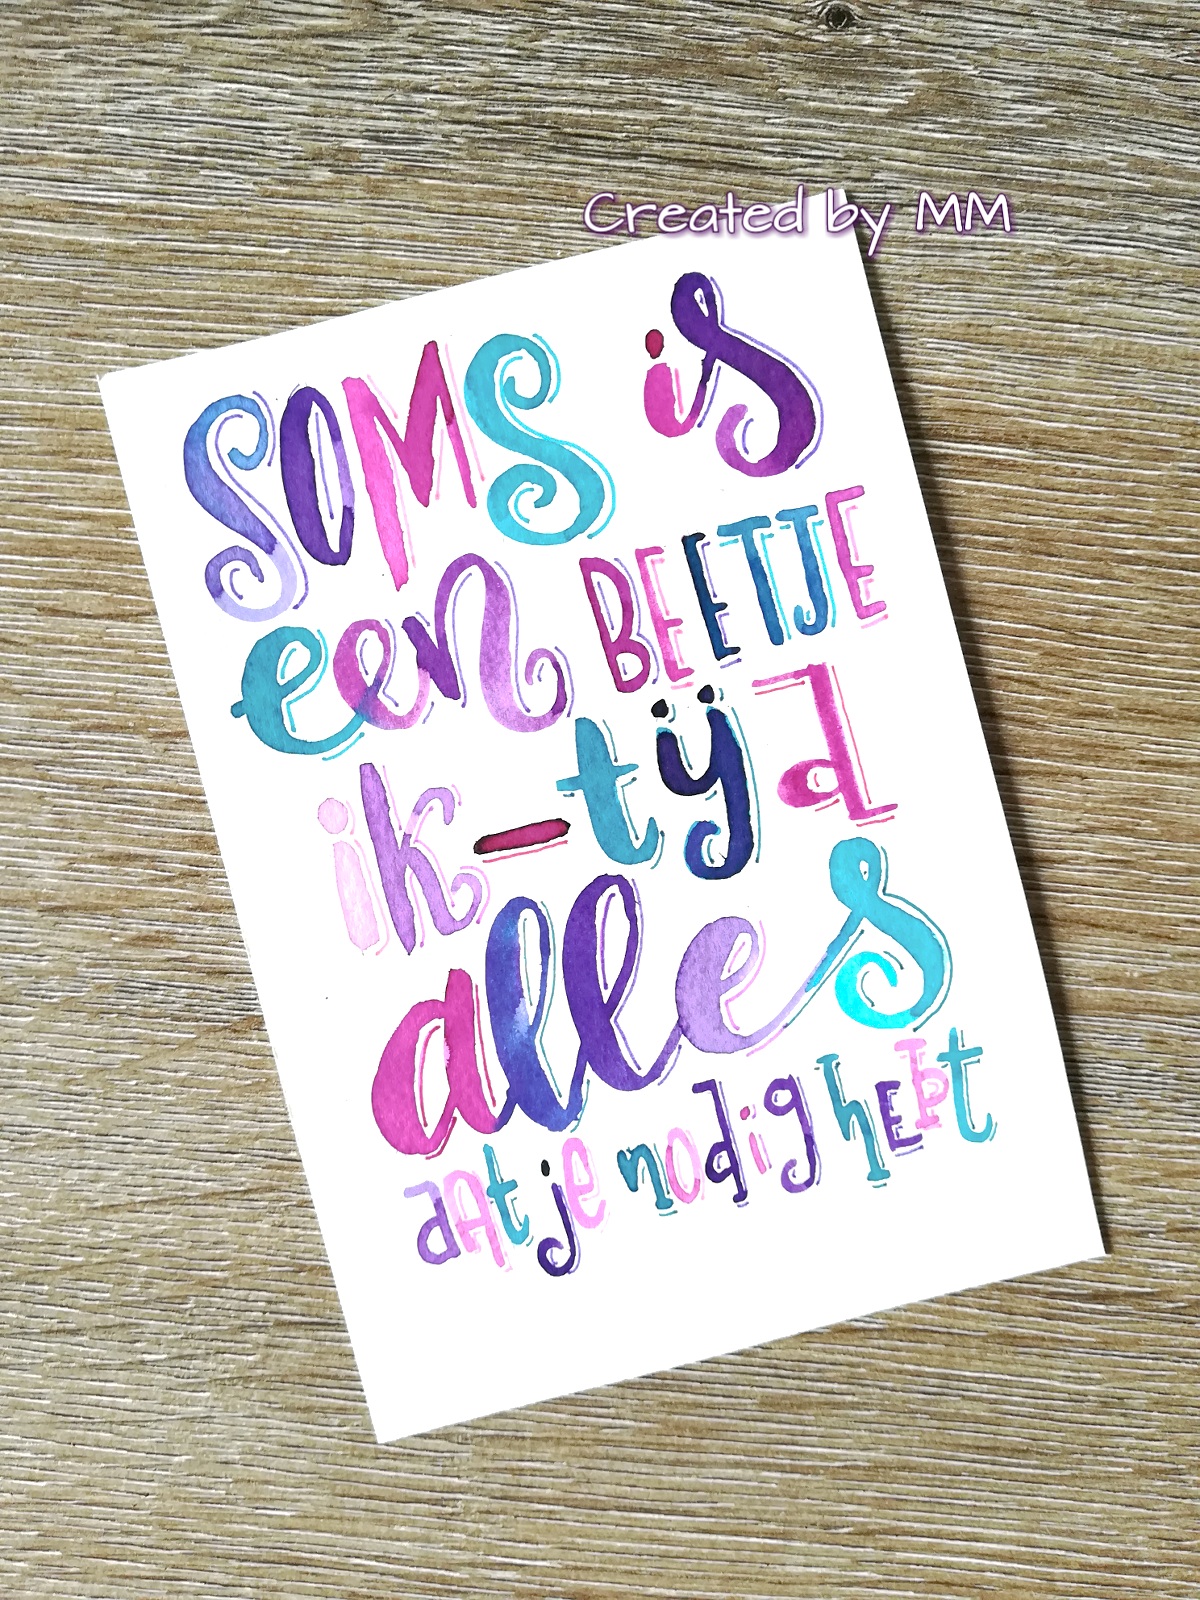 Created by MM
SOMS is
een BEETJE
ik-tijd
alles
dAt je nodig hEbt